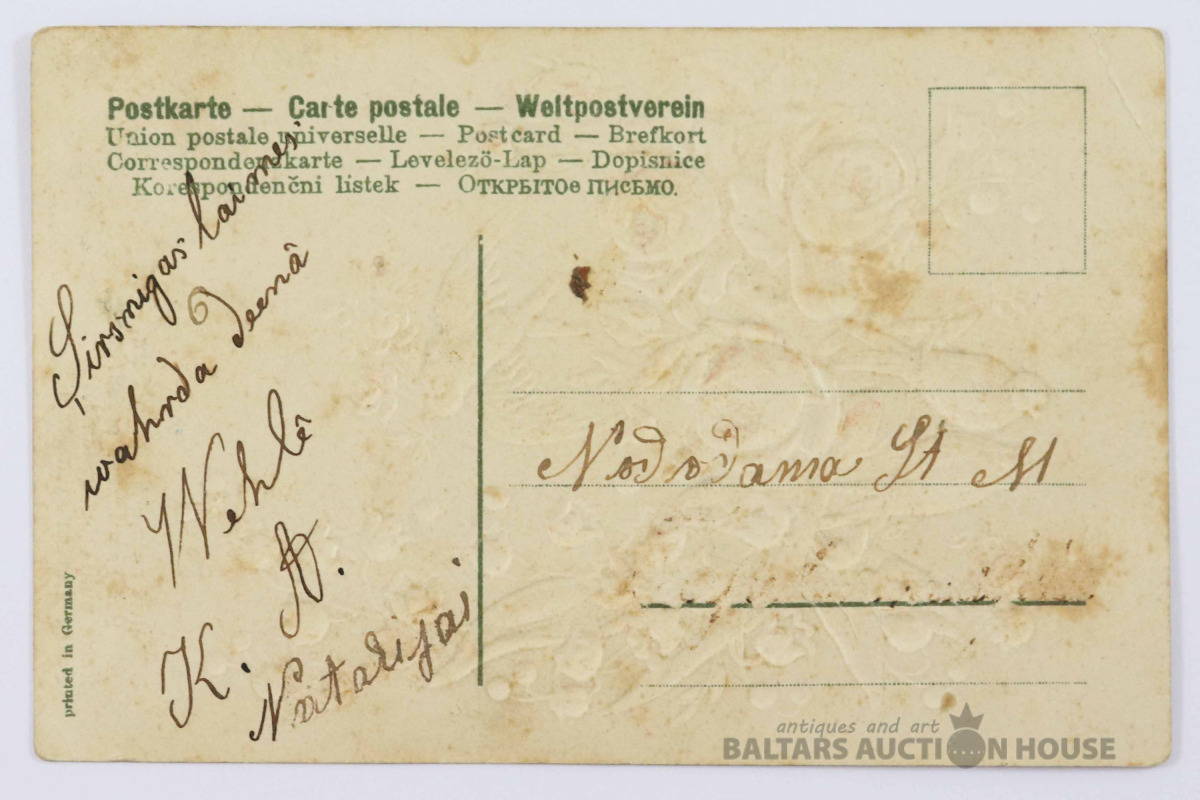 Postkarte — Carte postale — Weltpostverein
Union postale universelle — Postcard — Brefkort
Correspondenzkarte — Levelező-Lap — Dopisnice
Korespondenční lístek — Открытое письмо.
Sirsnigas laimes
wahrda deenâ
Wehlê
A.
K.
Natalijai
Nododama St M
printed in Germany
antiques and art
BALTARS AUCTION HOUSE